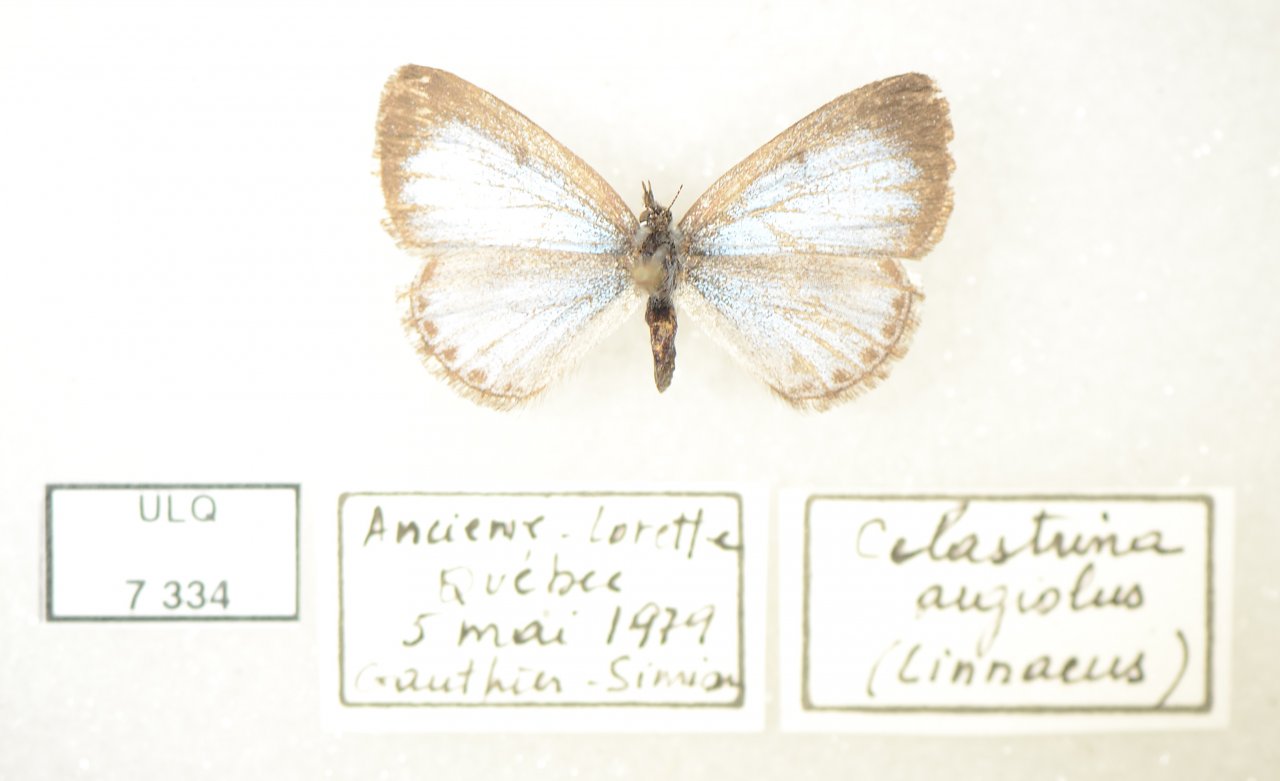 ULQ
7 334
Ancienne-Lorette
Québec
5 mai 1979
Gauthier-Simion
Celastrina
argiolus
(Linnaeus)